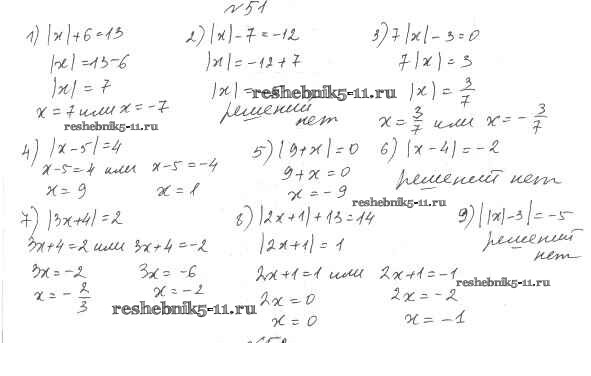 №51
1) |x|+6=13
|x|=13-6
|x|=7
x=7 или x=-7
2) |x|-7=-12
|x|=-12+7
|x|=-
решений
нет
3) 7|x|-3=0
7|x|=3
|x|=3/7
x=3/7 или x=-3/7
reshebnik5-11.ru
reshebnik5-11.ru
4) |x-5|=4
x-5=4 или x-5=-4
x=9 x=1
5) |9+x|=0
9+x=0
x=-9
6) |x-4|=-2
решений нет
reshebnik5-11.ru
7) |3x+4|=2
3x+4=2 или 3x+4=-2
3x=-2 3x=-6
x=-2/3 x=-2
8) |2x+1|+13=14
|2x+1|=1
2x+1=1 или 2x+1=-1
2x=0 2x=-2
x=0 x=-1
9) ||x|-3|=-5
решений
нет
reshebnik5-11.ru
reshebnik5-11.ru